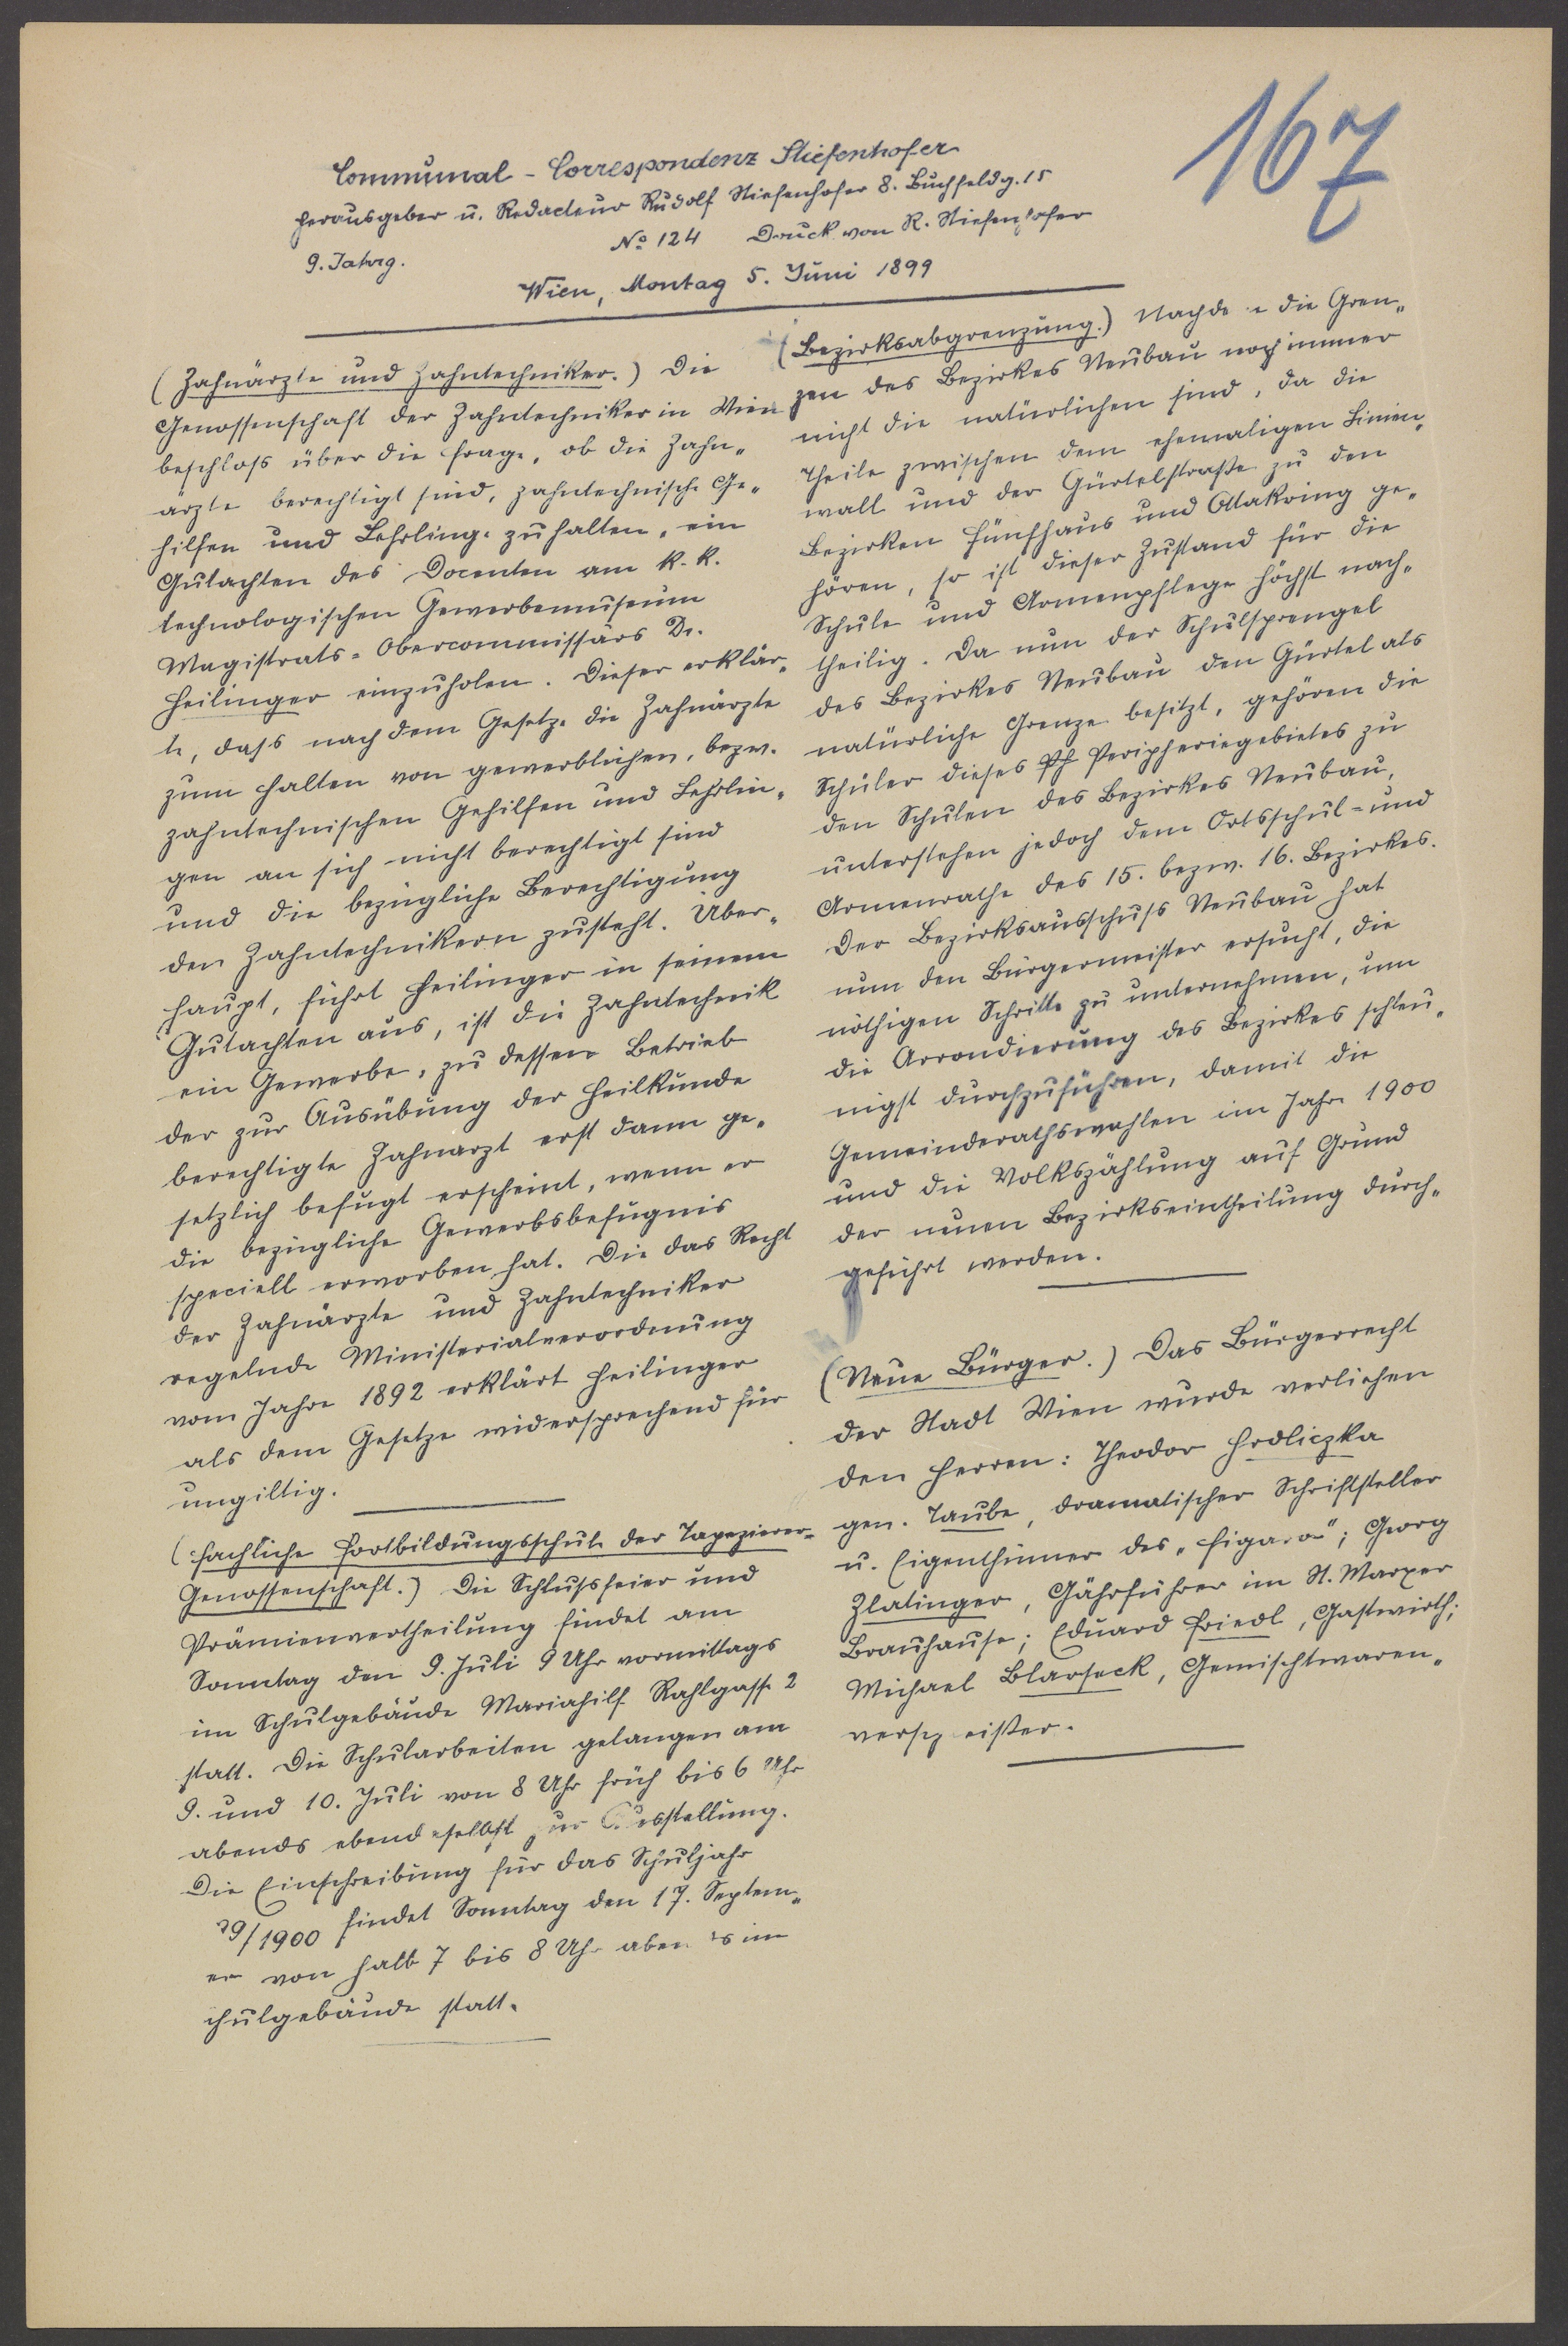 167
Communal-Correspondenz Stiefenhofer
Herausgeber u. Redacteur Rudolf Stiefenhofer 8. Buchfeldg. 15
9. Jahrg. No 124 Druck von R. Stiefenhofer
Wien, Montag 5. Juni 1899
(Zahnärzte und Zahntechniker.) Die
Genossenschaft der Zahntechniker in Wien
beschloß über die Frage, ob die Zahn„
ärzte berechtigt sind, zahntechnische Ge„
hilfen und Lehrlinge zu halten, ein
Gutachten des Docenten am k. k.
technologischen Gewerbemuseum
Magistrats-Obercommissärs Dr.
Heilinger einzuholen. Dieser erklär„
te, dass nach dem Gesetze die Zahnärzte
zum Halten von gewerblichen, bezw.
zahntechnischen Gehilfen und Lehrlin„
gen an sich nicht berechtigt sind
und die bezügliche Berechtigung
den Zahntechnikern zusteht. Über„
haupt, führt Heilinger in seinem
Gutachten aus, ist die Zahntechnik
ein Gewerbe, zu dessen Betrieb
der zur Ausübung der Heilkunde
berechtigte Zahnarzt erst dann ge„
setzlich befugt erscheint, wenn er
die bezügliche Gewerbsbefugnis
speciell erworben hat. Die das Recht
der Zahnärzte und Zahntechniker
regelnde Ministerialverordnung
vom Jahre 1892 erklärt Heilinger
als dem Gesetze widersprechend für
ungiltig.
(Fachliche Fortbildungsschule der Tapezierer-
Genossenschaft.) Die Schlussfeier und
Prämienvertheilung findet am
Sonntag den 9. Juli 9 Uhr vormittags
im Schulgebäude Mariahilf Rahlgasse 2
statt. Die Schularbeiten gelangen am
9. und 10. Juli von 8 Uhr früh bis 6 Uhr
abends ebendaselbst zur Ausstellung.
Die Einschreibung für das Schuljahr
99/1900 findet Sonntag den 17. Septem„
er von halb 7 bis 8 Uhr abends im
chulgebäude statt.
(Bezirksabgrenzung.) Nachdem die Gren„
zen des Bezirkes Neubau noch immer
nicht die natürlichen sind, da die
Theile zwischen dem ehemaligen Linien„
wall und der Gürtelstraße zu den
Bezirken Fünfhaus und Ottakring ge„
hören, so ist dieser Zustand für die
Schule und Armenpflege höchst nach„
theilig. Da nun der Schulsprengel
des Bezirkes Neubau den Gürtel als
natürliche Grenze besitzt, gehören die
Schüler dieses Peripheriegebietes zu
den Schulen des Bezirkes Neubau,
unterstehen jedoch dem Ortsschul- und
Armenrathe des 15. bezw. 16. Bezirkes.
Der Bezirksausschuss Neubau hat
nun den Bürgermeister ersucht, die
nöthigen Schritte zu unternehmen, um
die Arrondierung des Bezirkes schleu„
nigst durchzuführen, damit die
Gemeinderathswahlen im Jahre 1900
und die Volkszählung auf Grund
der neuen Bezirkseintheilung durch„
geführt werden.
(Neue Bürger.) Das Bürgerrecht
der Stadt Wien wurde verliehen
den Herren: Theodor Hrdliczka
gen. Taube, dramatischer Schriftsteller
u. Eigenthümer des „Figaro"; Georg
Zlatinger, Gährführer im St. Marxer
Brauhause; Eduard Friedl, Gastwirth;
Michael Blarseck, Gemischtwaren„
verschleißer.